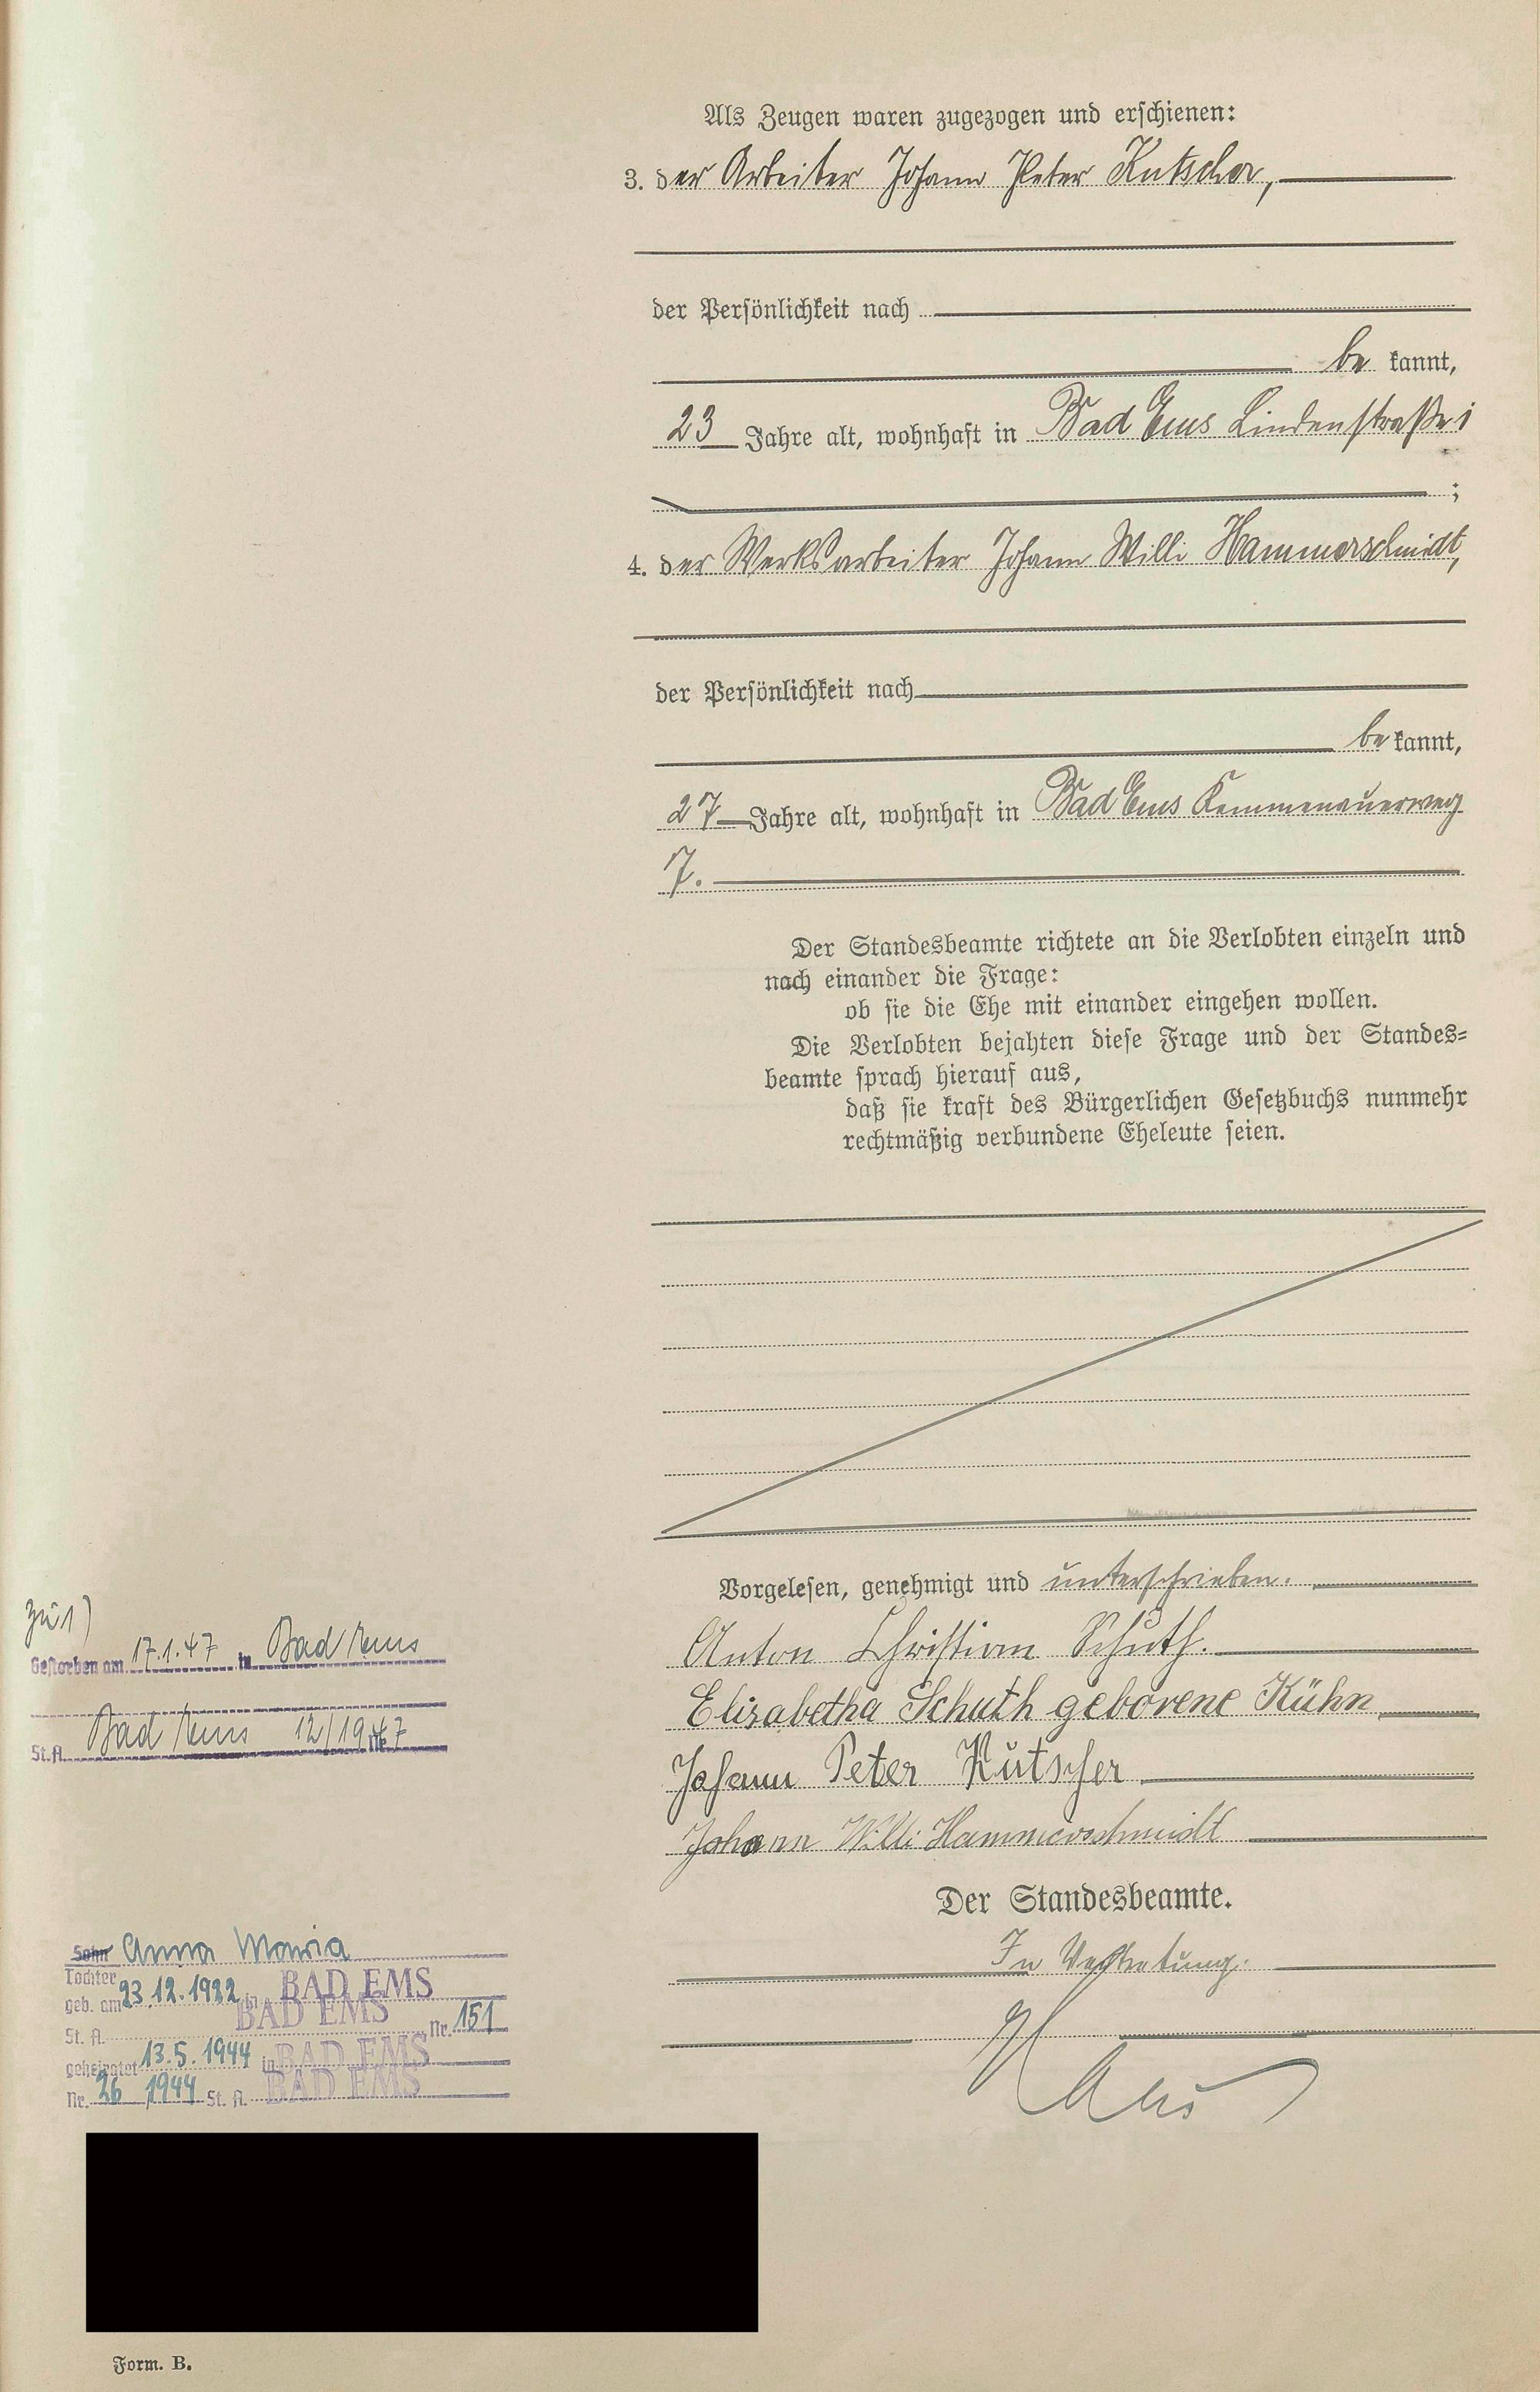 Als Zeugen waren zugezogen und erschienen:
3. der Arbeiter Johann Peter Kutscher,
der Persönlichkeit nach
be kannt,
23 Jahre alt, wohnhaft in Bad Ems Lindenstraße 1
;
4. der Werksarbeiter Johann Willi Hammerschmidt,
der Persönlichkeit nach
be kannt,
27 Jahre alt, wohnhaft in Bad Ems Kemmenauerweg
7.
Der Standesbeamte richtete an die Verlobten einzeln und
nach einander die Frage:
ob sie die Ehe mit einander eingehen wollen.
Die Verlobten bejahten diese Frage und der Standes=
beamte sprach hierauf aus,
daß sie kraft des Bürgerlichen Gesetzbuchs nunmehr
rechtmäßig verbundene Eheleute seien.
Vorgelesen, genehmigt und unterschrieben.
Anton Christian Schuth.
Elisabetha Schuth geborene Kühn
Johann Peter Kutscher
Johann Willi Hammerschmidt
Der Standesbeamte.
In Vertretung.
zu 1)
Gestorben am 17.1.47 in Bad Ems
St.A. Bad Ems 12/1947
Sohn Anna Maria
Tochter
geb. am 23.12.1922 in BAD EMS
St. A. BAD EMS Nr. 151
geheiratet 13.5.1944 in BAD EMS
Nr. 26 1944 St. A. BAD EMS
Form. B.